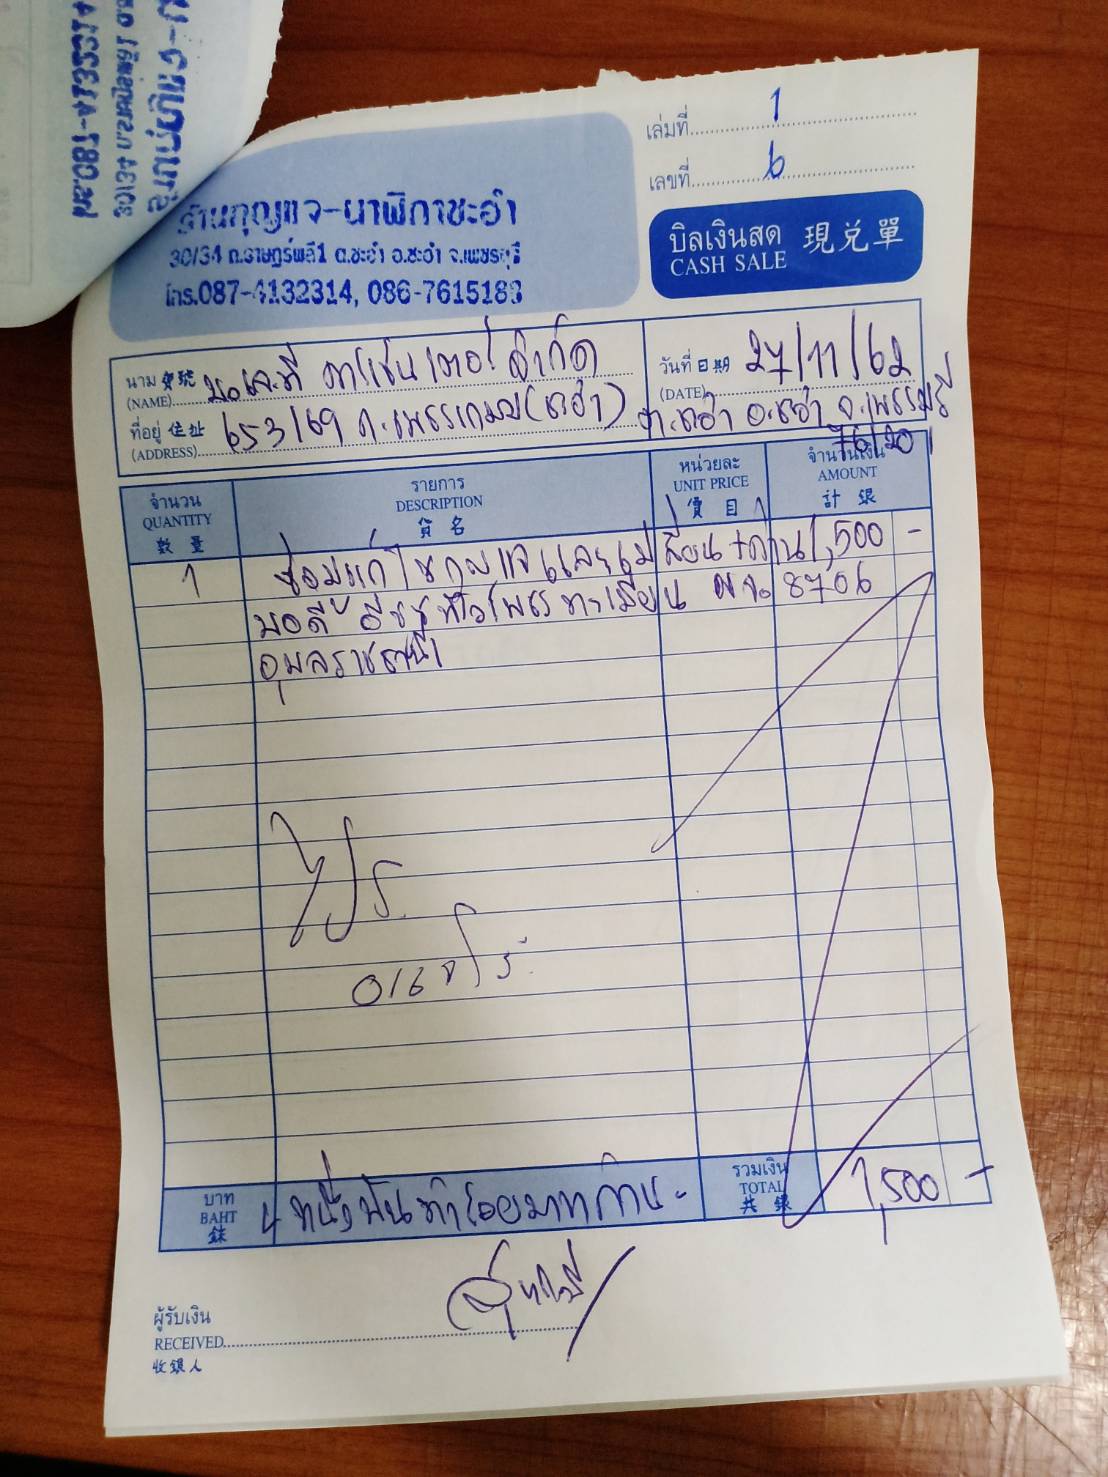 เล่มที่ 1
เลขที่ 6
ร้านกุญแจ-นาฬิกาชะอำ
30/34 ถ.ราษฎร์พลี1 ต.ชะอำ อ.ชะอำ จ.เพชรบุรี
โทร.087-4132314, 086-7615183
บิลเงินสด 現兑單
CASH SALE
นาม 寶號 (NAME) คาร์เซ็นเตอร์ จำกัด
วันที่ 日期 (DATE) 27/11/62
ที่อยู่ 住址 (ADDRESS) 653/69 ถ.เพชรเกษม (ชะอำ) ต.ชะอำ อ.ชะอำ จ.เพชรบุรี
76120
จำนวน QUANTITY 數量
รายการ DESCRIPTION 貨名
หน่วยละ UNIT PRICE 價目
จำนวนเงิน AMOUNT 計銀
1 ซ่อมแก้ไขกุญแจและ 1,500 -
อีซูซุ ทะเบียน 8706
อุบลราชธานี
บาท BAHT 銖 หนึ่งพันห้าร้อยบาทถ้วน -
รวมเงิน TOTAL 共銀 1,500 -
ผู้รับเงิน
RECEIVED
收銀人